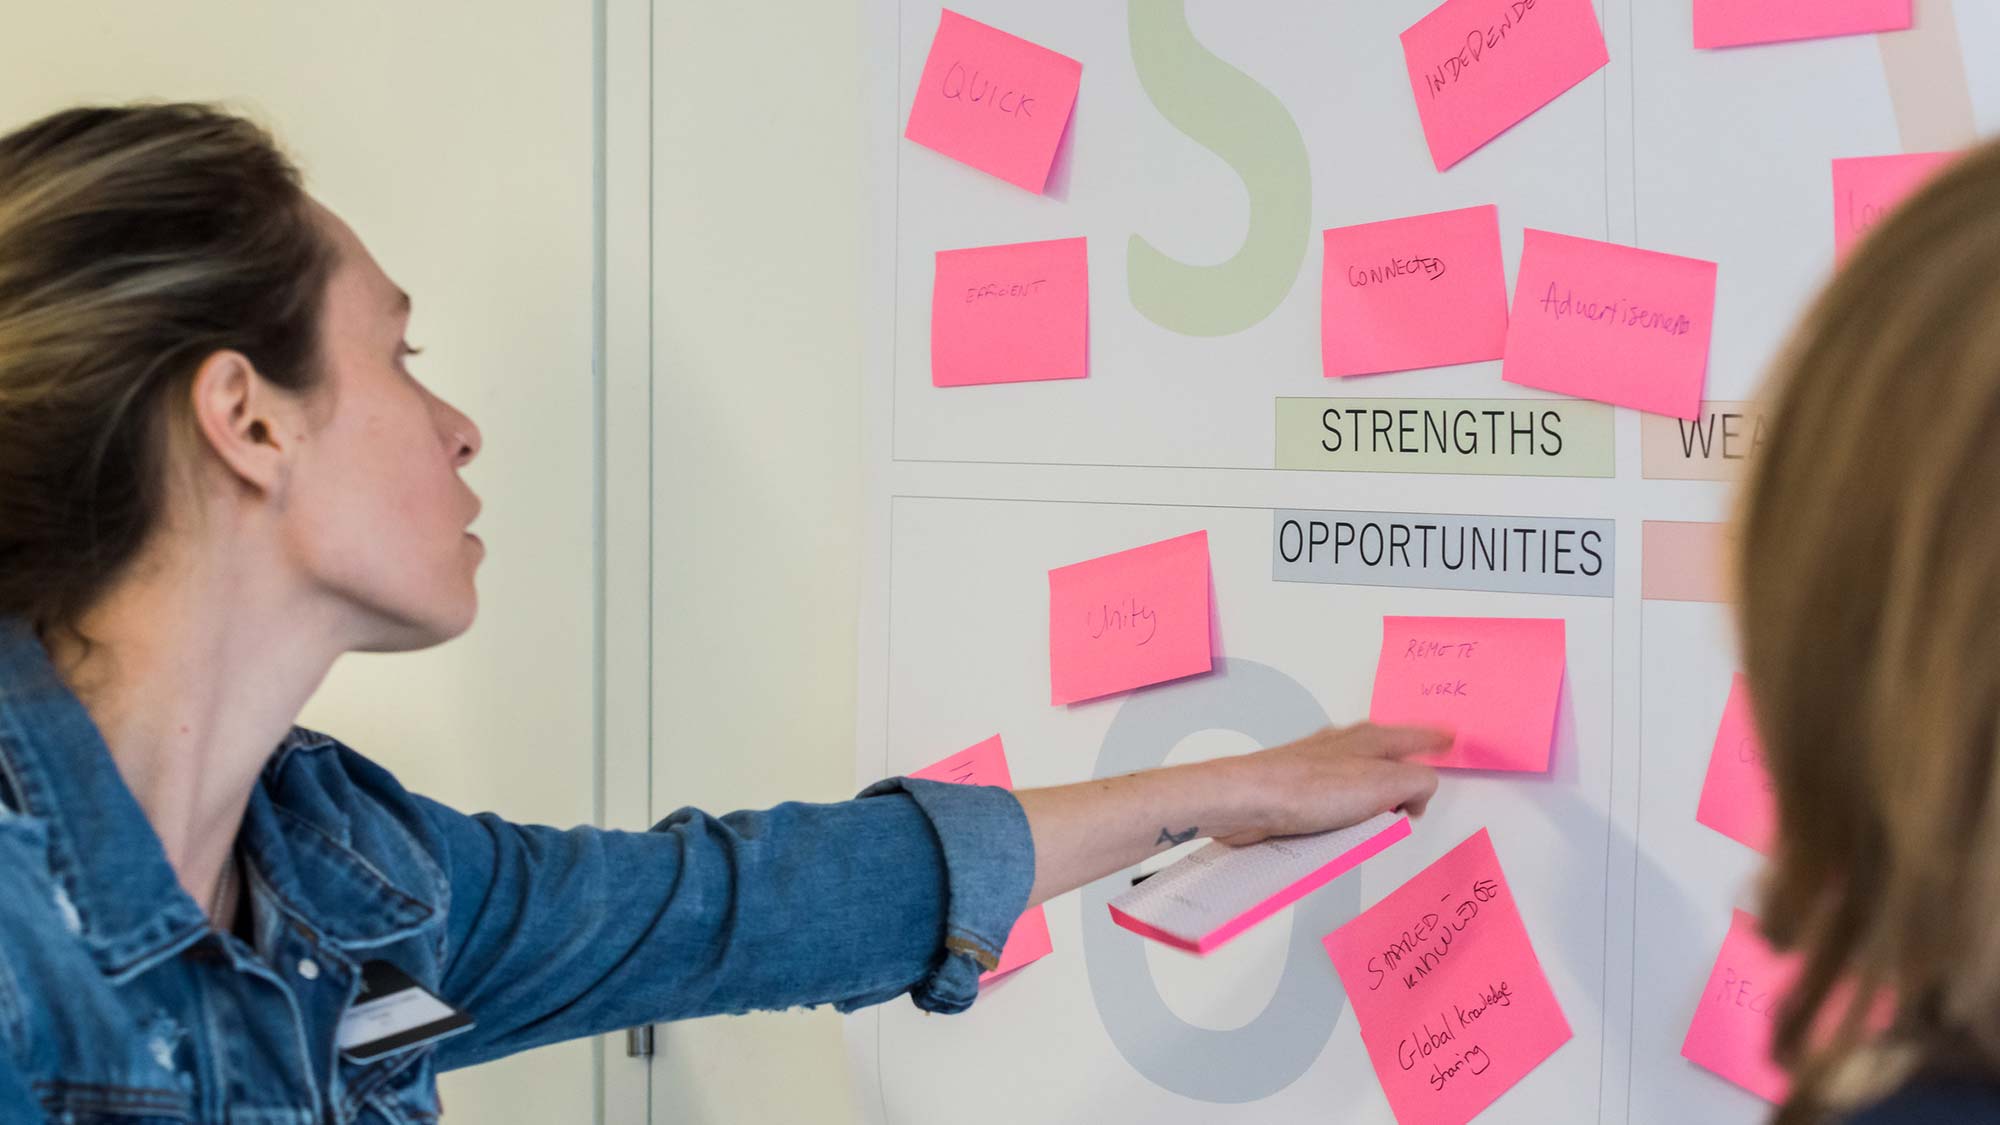 QUICK
INDEPENDE
EFFICIENT
CONNECTED
Advertisement
S
STRENGTHS
WEA
OPPORTUNITIES
Unity
REMOTE
WORK
O
SHARED-
KNOWLEDGE
Global Knowledge
sharing
REC